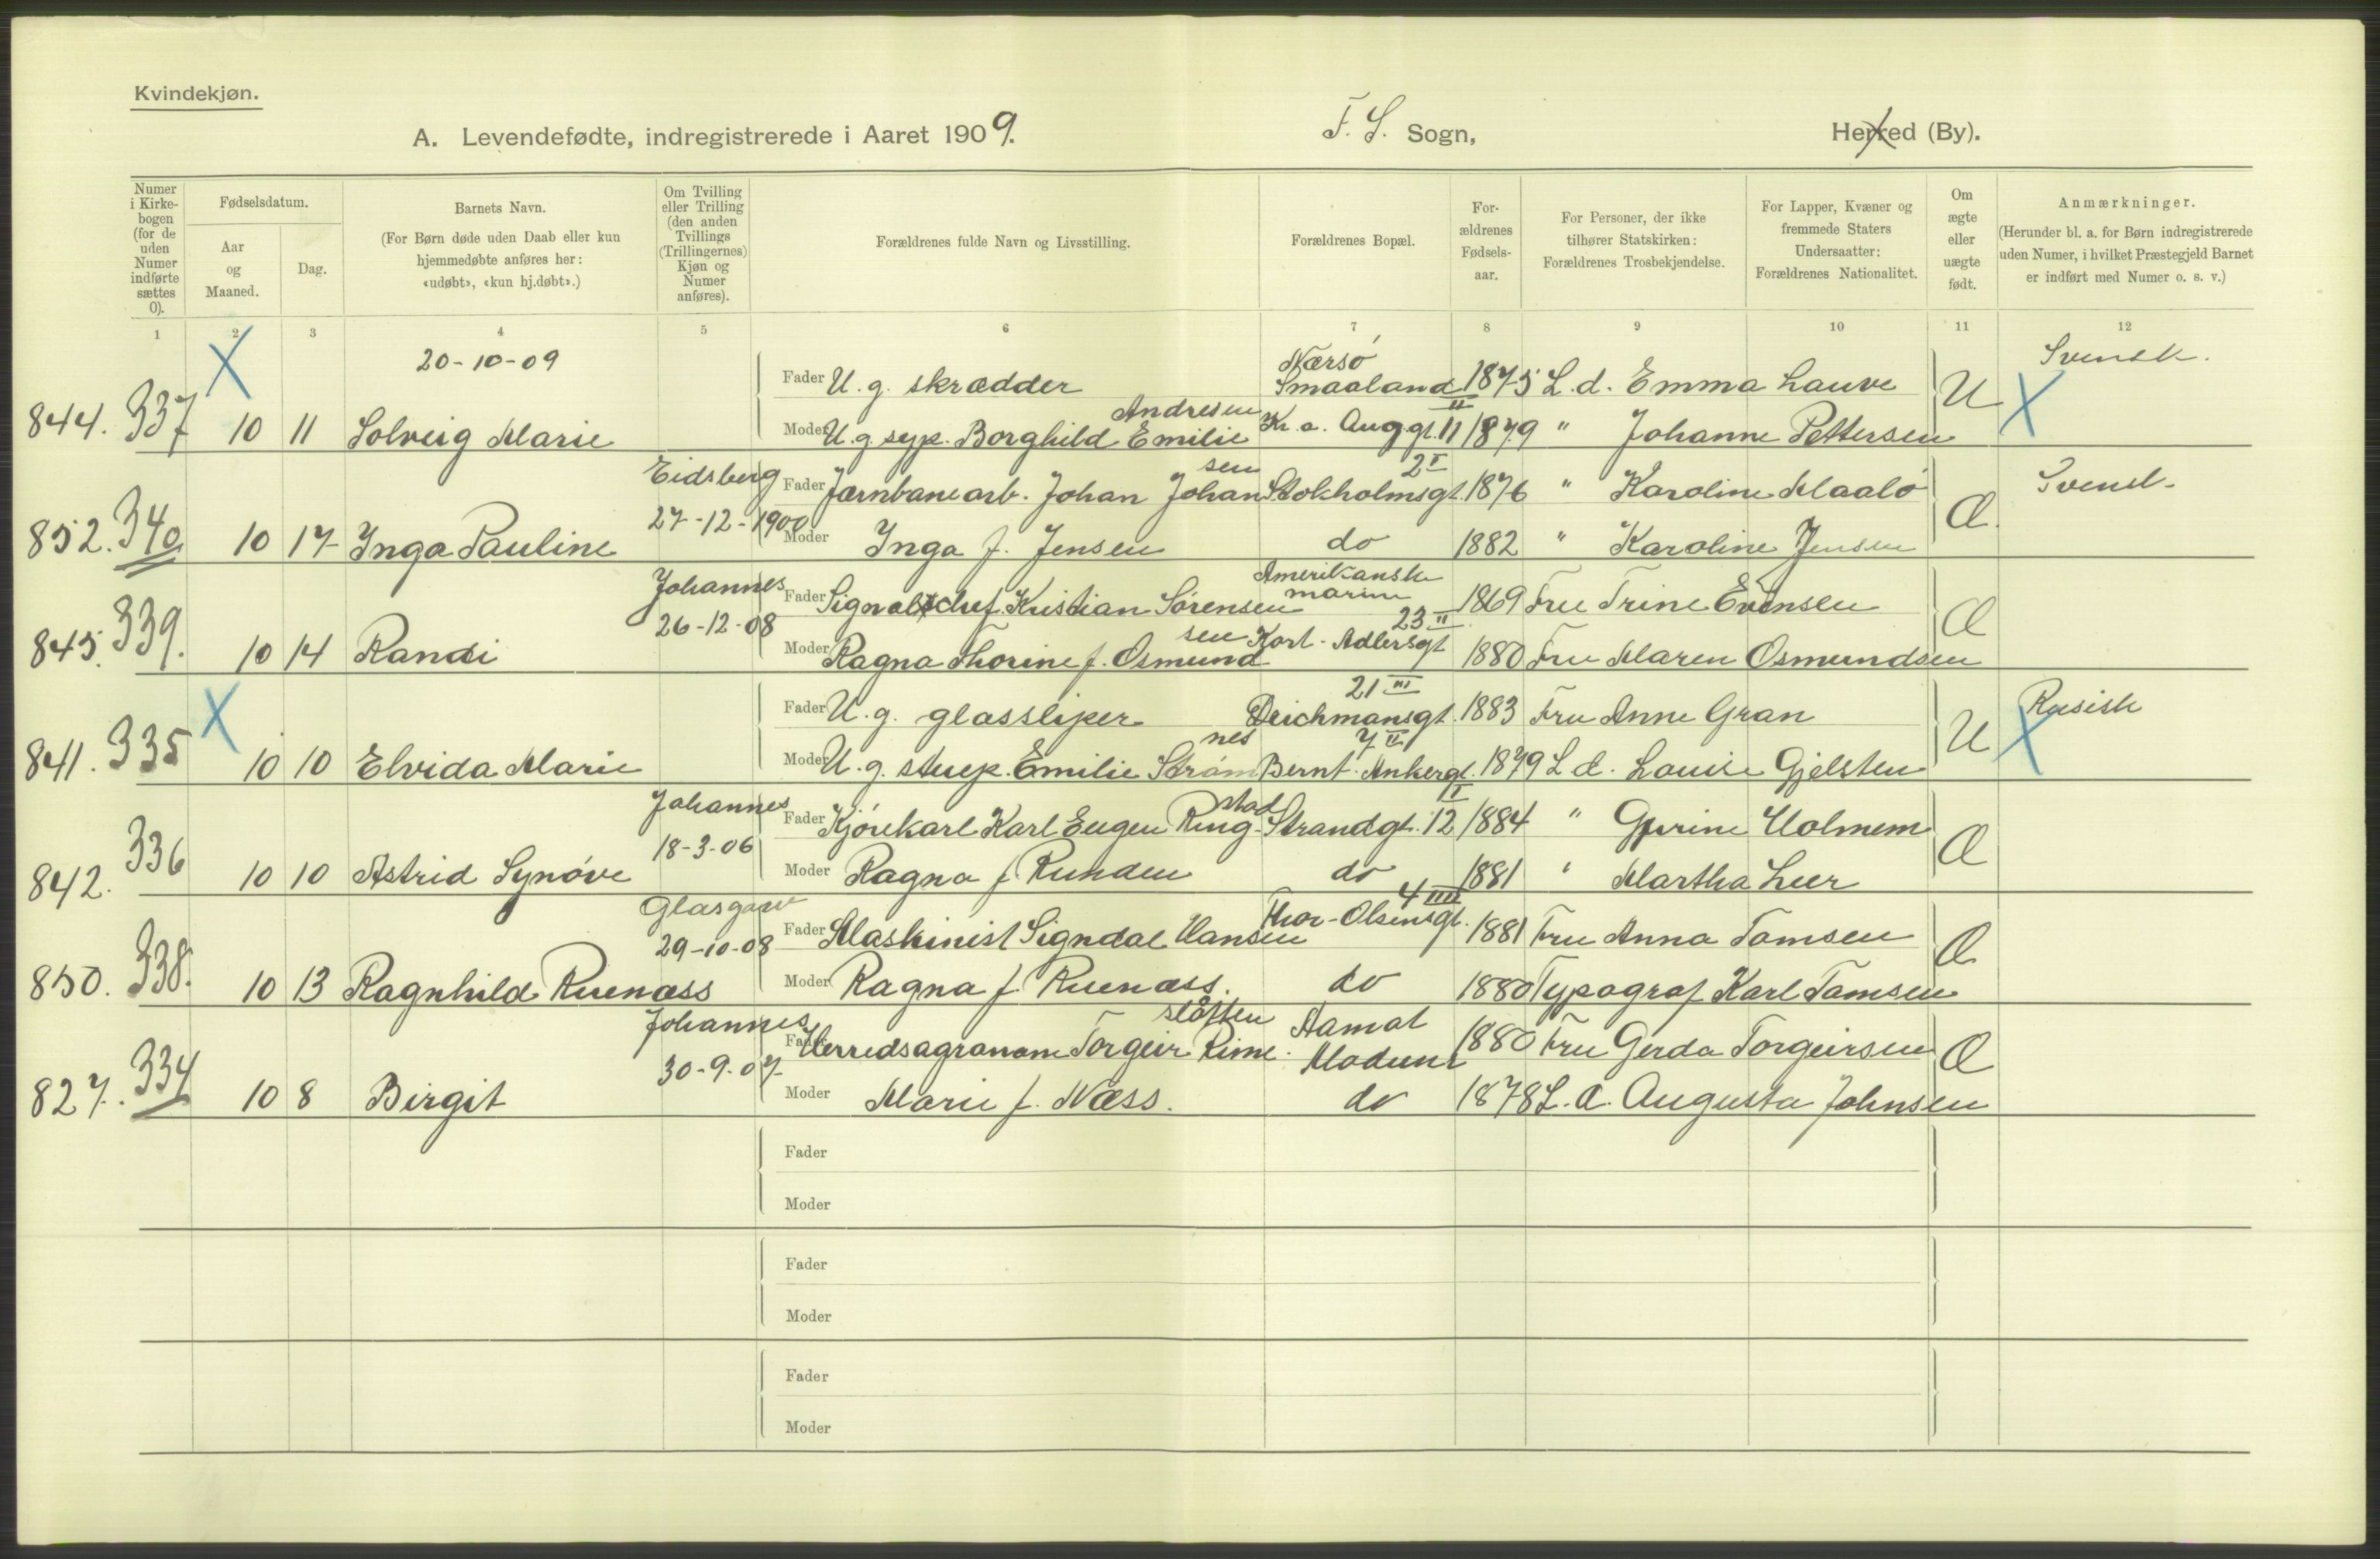 Kvindekjøn.
A. Levendefødte, indregistrerede i Aaret 1909.
F. S. Sogn,
Herred (By).
Numer i Kirkebogen (for de uden Numer indførte sættes 0).
Fødselsdatum.
Aar og Maaned.
Dag.
Barnets Navn.
(For Børn døde uden Daab eller kun hjemmedøbte anføres her: «udøbt», «kun hj.døbt».)
Om Tvilling eller Trilling (den anden Tvillings (Trillingernes) Kjøn og Numer anføres).
Forældrenes fulde Navn og Livsstilling.
Forældrenes Bopæl.
Forældrenes Fødselsaar.
For Personer, der ikke tilhører Statskirken: Forældrenes Trosbekjendelse.
For Lapper, Kvæner og fremmede Staters Undersaatter: Forældrenes Nationalitet.
Om ægte eller uægte født.
Anmærkninger.
(Herunder bl. a. for Børn indregistrerede uden Numer, i hvilket Præstegjeld Barnet er indført med Numer o. s. v.)
1 2 3 4 5 6 7 8 9 10 11 12
20-10-09 Fader U. g. skrædder Nærsö Smaaland 1875 L. d. Emma Lauve U Svensk.
844. 337 10 11 Solveig Marie Moder U. g. syp. Borghild Emilie Andresen Kr. a. Aug.gt. 11 II 1879 " Johanne Pettersen
Eidsberg Fader Jærnbanearb. Johan Johansen Stokholmsgt. 2 I 1876 " Karoline Maalö Æ. Svensk
852. 340 10 17 Inga Pauline 27-12-1900 Moder Inga f. Jensen do 1882 " Karoline Jensen
Johannes Fader Signalchef Kristian Sörensen Amerikanske marine 1869 Fru Trine Evensen Æ
845. 339. 10 14 Randi 26-12-08 Moder Ragna Thorine f. Osmundsen Kort-Adlersgt 23 II 1880 Fru Maren Osmundsen
Fader U. g. glassliper Deichmansgt. 21 III 1883 Fru Anne Gran U Rusisk
841. 335 10 10 Elvida Marie Moder U. g. stuep. Emilie Strömnes Bernt Ankergt. 7 II 1879 L. d. Louise Gjelsten
Johannes Fader Kjörekarl Karl Eugen Ringstad Strandgt. 12 I 1884 " Gurine Holmem Æ
842. 336 10 10 Astrid Synöve 18-3-06 Moder Ragna f. Runden do 1881 " Martha Leer
Glasgow Fader Maskinist Signdal Hansen Thor-Olsensgt. 4 IIII 1881 Fru Anna Tomsen Æ
850. 338. 10 13 Ragnhild Ruenæss 29-10-08 Moder Ragna f. Ruenæss. do 1880 Typograf Karl Tomsen
Johannes Fader Herredsagronom Torgeir Rimeslåtten Aamot Modum 1880 Fru Gerda Torgeirsen Æ
827. 334 10 8 Birgit 30-9-07 Moder Marie f. Næss. do 1878 L. d. Augusta Johnsen
Fader
Moder
Fader
Moder
Fader
Moder